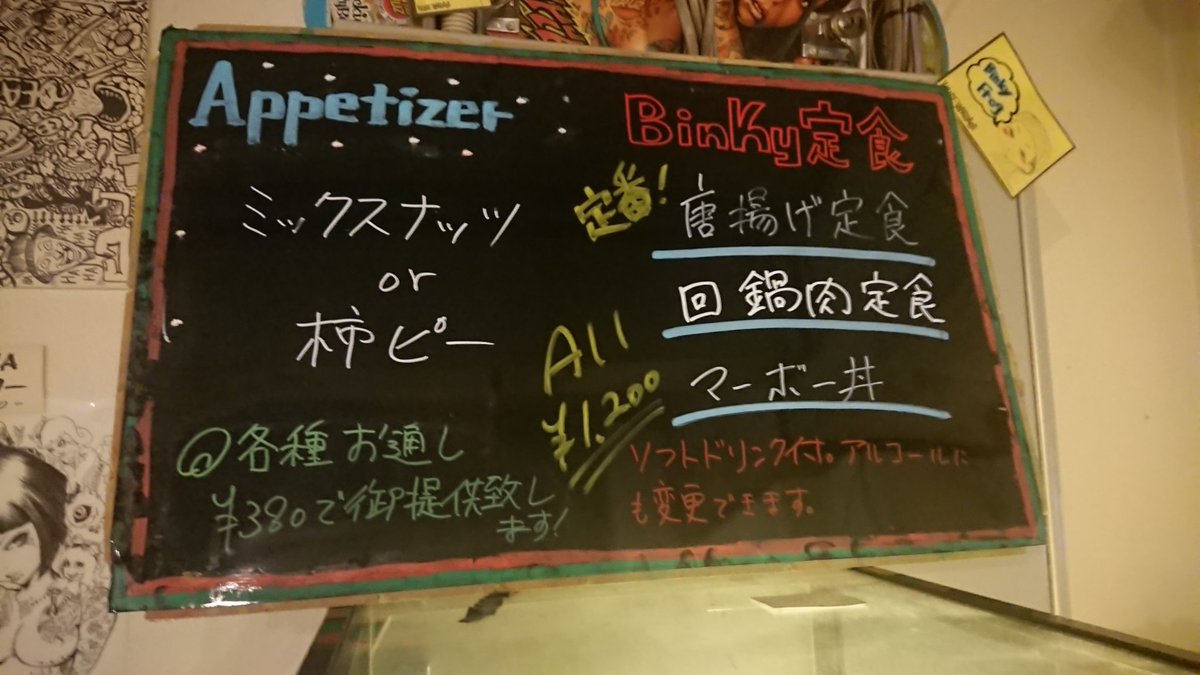 Appetizer
ミックスナッツ
or
柿ピー
@各種お通し
¥380で御提供致し
ます!
Binky定食
定番!
唐揚げ定食
回鍋肉定食
マーボー丼
All
¥1,200
ソフトドリンク付。アルコールに
も変更できます。